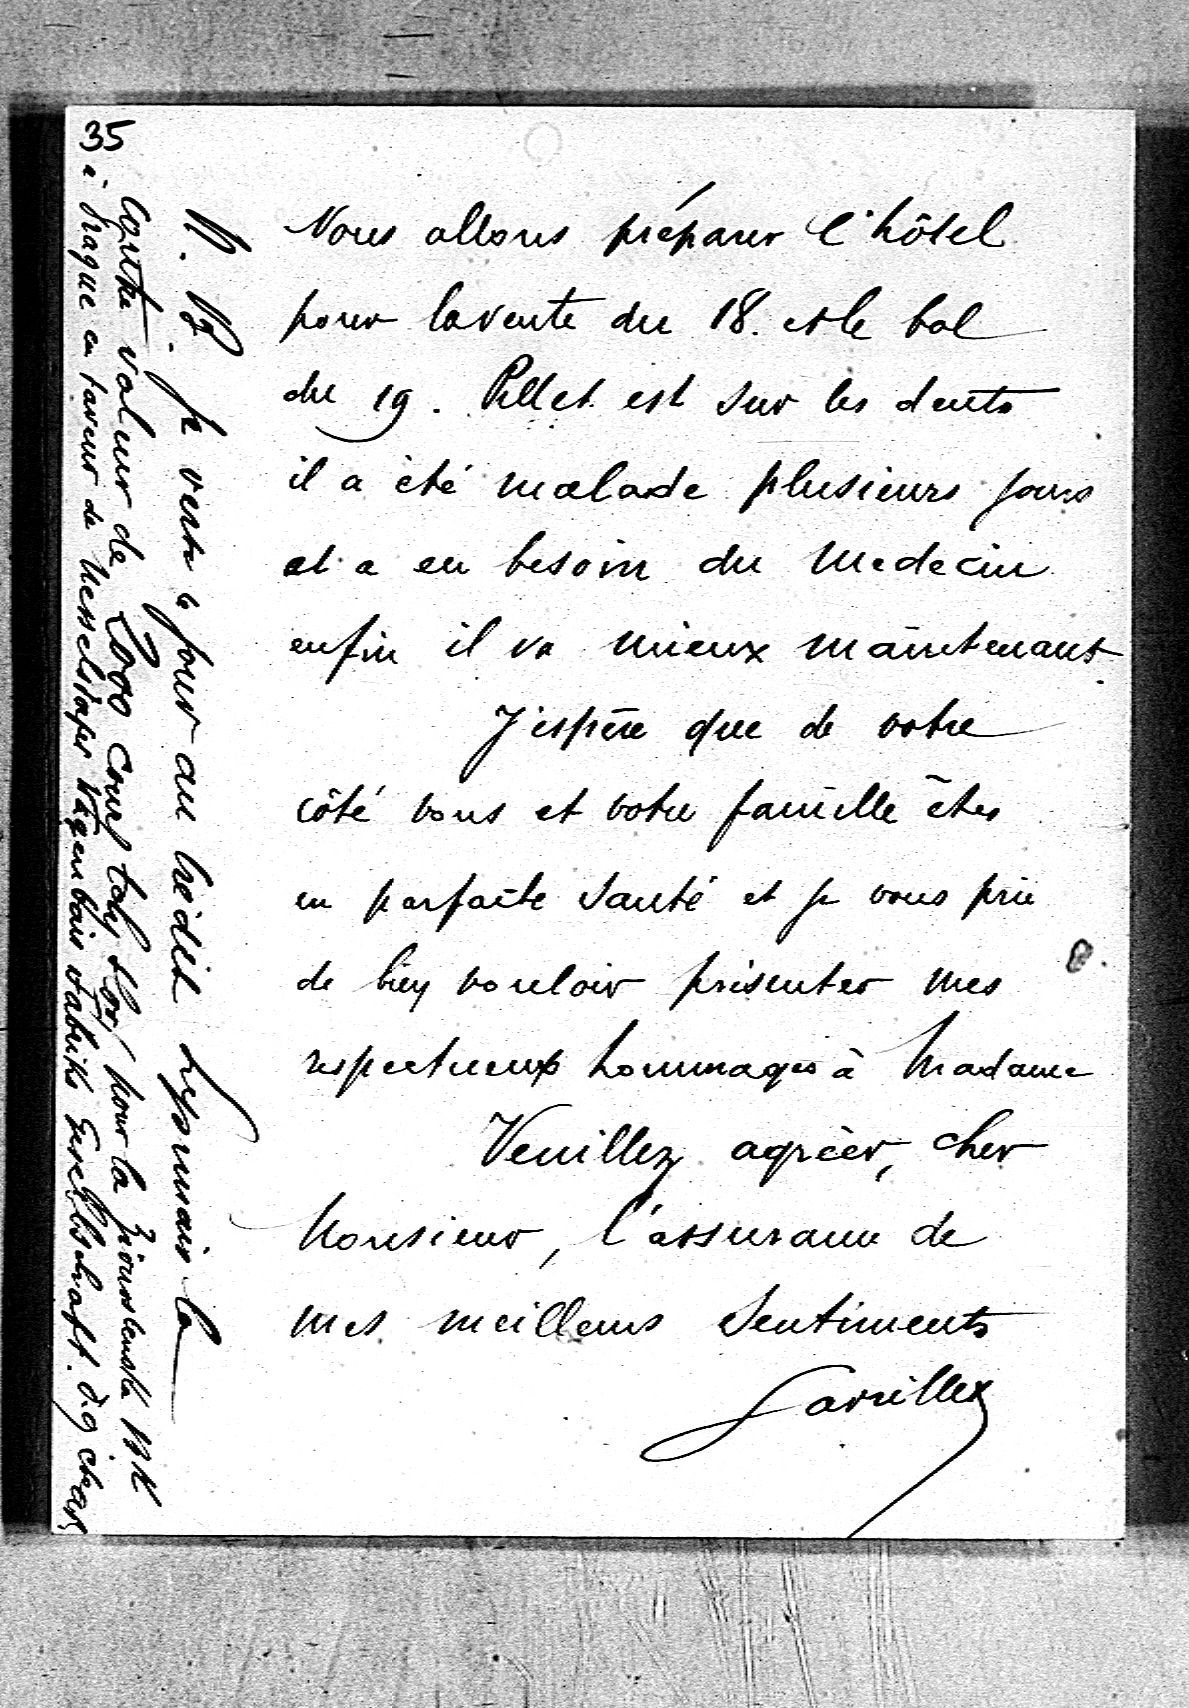 35
Nous allons préparer l'hôtel
pour la vente du 18. et le bal
du 19. Pillet est sur les dents
il a été malade plusieurs jours
et a eu besoin du medecin
enfin il va mieux maintenant
J'espère que de votre
côté vous et votre famille êtes
en parfaite santé et je vous prie
de bien vouloir présenter mes
respectueux hommages à Madame
Veuillez agréer, cher
Monsieur, l'assurance de
mes meilleurs sentiments
N. B. Je verse à jour au Crédit Lyonnais la
Contre valeur de pour la Zivnostenska BK
à Prague en faveur de Nesselsdorfer Wagenbau Fabriks Gesellschaft.